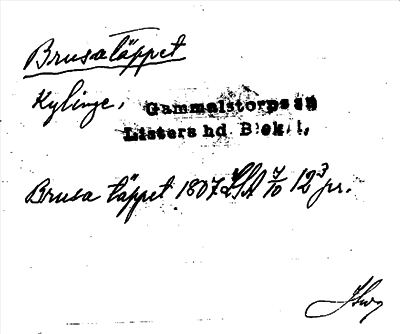 Brusatäppet
Kylinge, Gammalstorps sn
Listers hd Blek. l.,
Brusa täppet 1807 LSA 7/10 12 3 pr.